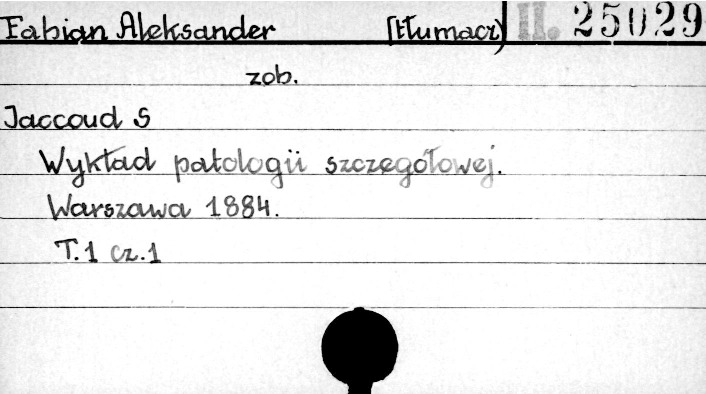 Fabian Aleksander [tłumacz) II. 25029
zob.
Jaccoud S
Wykład patologii szczegółowej.
Warszawa 1884.
T.1 cz.1